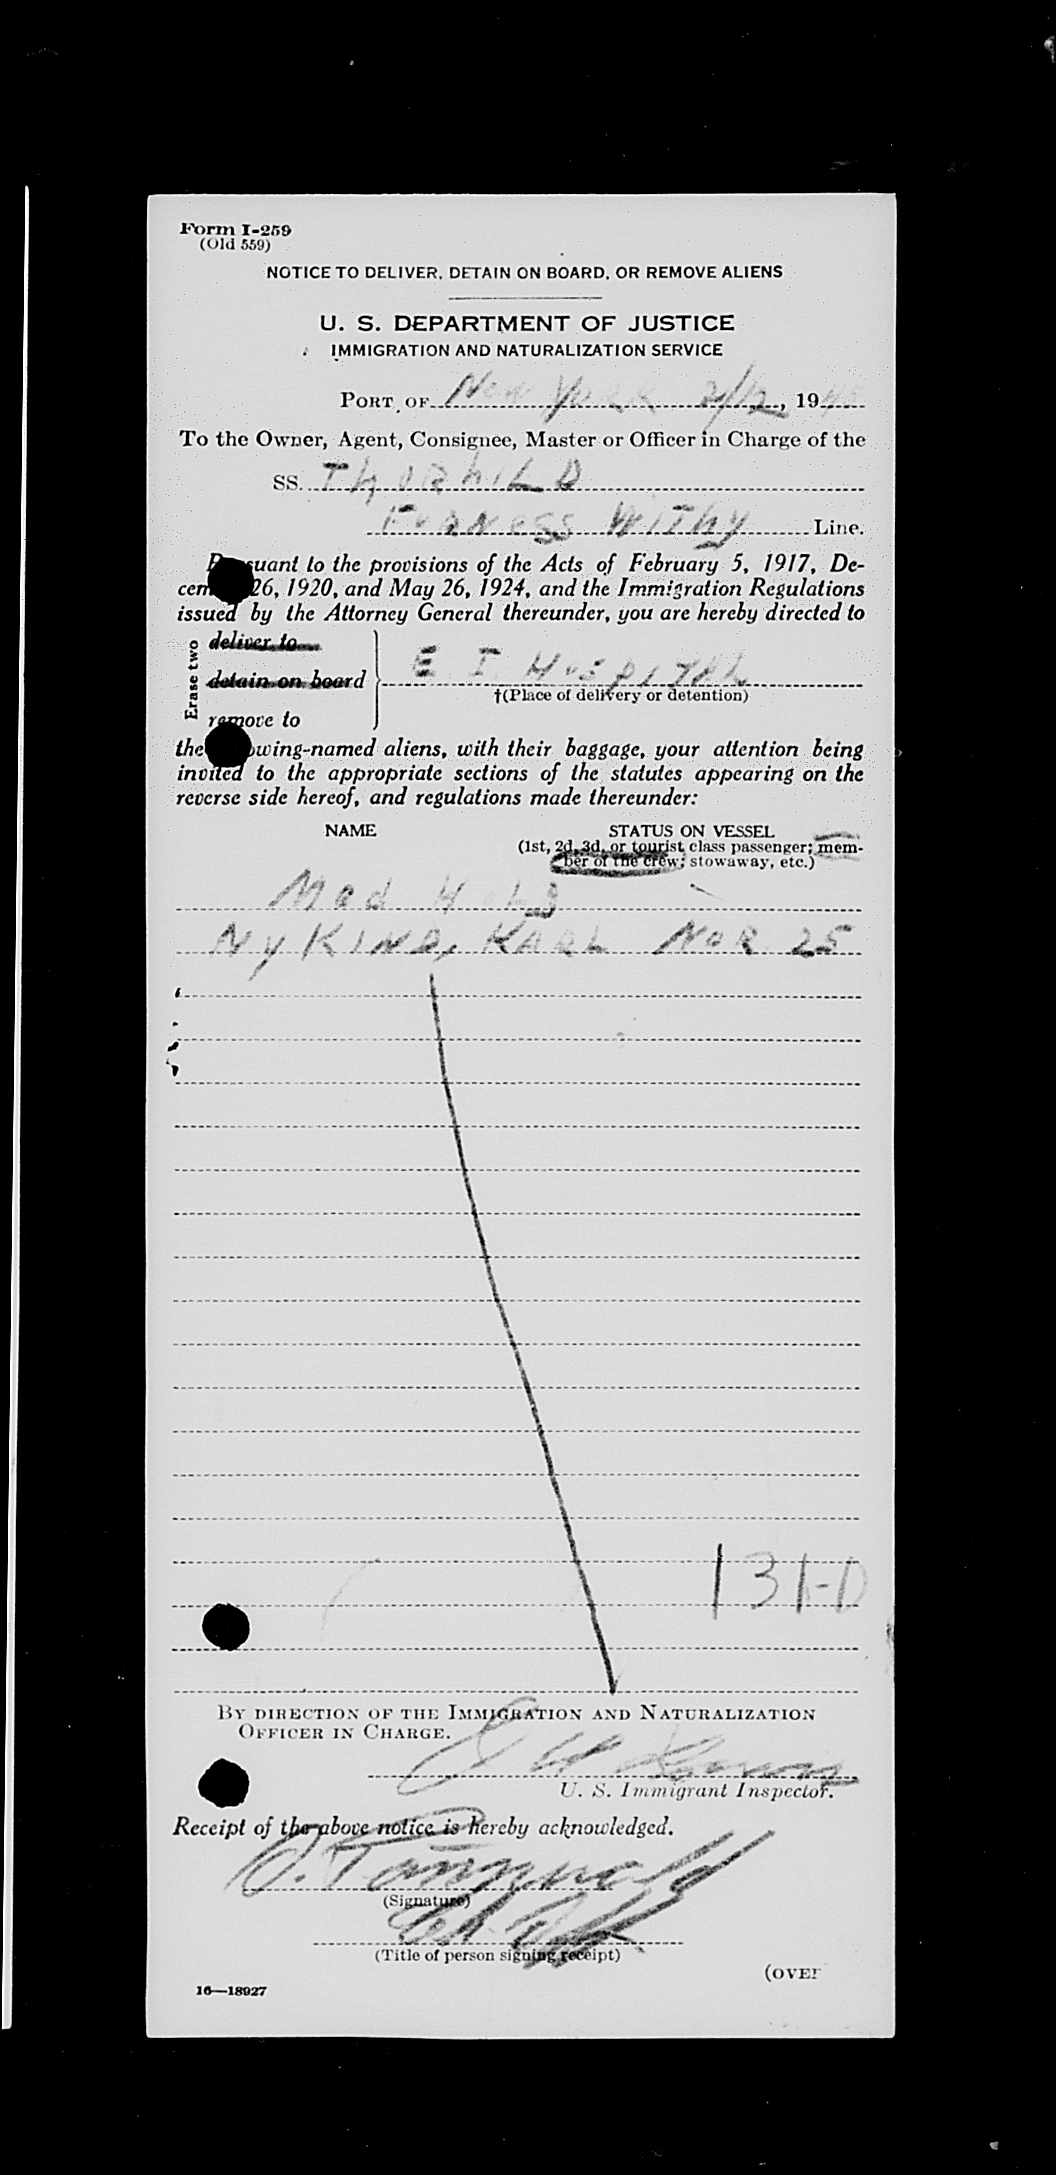 Form I-259
(Old 559)
NOTICE TO DELIVER, DETAIN ON BOARD, OR REMOVE ALIENS
U. S. DEPARTMENT OF JUSTICE
IMMIGRATION AND NATURALIZATION SERVICE
PORT OF New York 2/12, 1945
To the Owner, Agent, Consignee, Master or Officer in Charge of the
SS. THORHILD
FURNESS WITHY Line.
Pursuant to the provisions of the Acts of February 5, 1917, De-
cem 26, 1920, and May 26, 1924, and the Immigration Regulations
issued by the Attorney General thereunder, you are hereby directed to
Erase two
deliver to
detain on board
E I HOSPITAL
†(Place of delivery or detention)
remove to
the owing-named aliens, with their baggage, your attention being
invited to the appropriate sections of the statutes appearing on the
reverse side hereof, and regulations made thereunder:
NAME STATUS ON VESSEL
(1st, 2d, 3d, or tourist class passenger; mem-
ber of the crew; stowaway, etc.)
Med Hold
NYKIND, KARL NOR 25
131-D
BY DIRECTION OF THE IMMIGRATION AND NATURALIZATION
OFFICER IN CHARGE.
U. S. Immigrant Inspector.
Receipt of the above notice is hereby acknowledged.
(Signature)
(Title of person signing receipt)
(OVER
16—18927